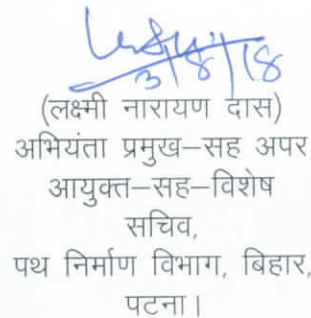 3/8/18
(लक्ष्मी नारायण दास)
अभियंता प्रमुख–सह अपर
आयुक्त–सह–विशेष
सचिव,
पथ निर्माण विभाग, बिहार,
पटना।